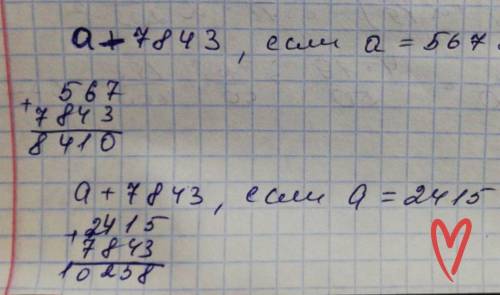 a + 7843, если a = 567
+ 567
7843
8410
a + 7843, если a = 2415
+ 2415
7843
10258